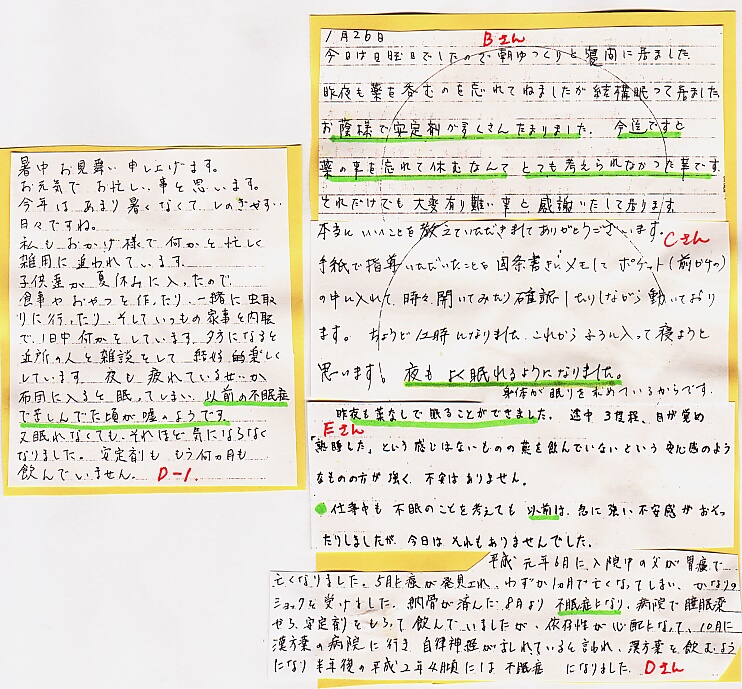 暑中お見舞い申し上げます。
お元気でお忙しい事と思います。
今年はあまり暑くなくてしのぎやすい
日々ですね。
私もおかげ様で何かと忙しく
雑用に追われています。
子供達が夏休みに入ったので
食事やおやつを作ったり、一緒に虫取
りに行ったり、そしていつもの家事と内職
で、1日中何かとしています。夕方になると
近所の人と雑談をして 結好的楽しく
しています 夜も疲れているせいか
布団に入ると眠ってしまい、以前の不眠症
で苦しんでた頃が嘘のようです。
又眠れなくても、それほど気にならなく
なりました。安定剤も もう何ヵ月も
飲んでいません。 D-1.
1月26日 Bさん
今日は日曜日でしたので朝ゆっくりと寝間に居ました
昨夜も薬を呑むのを忘れてねましたが結構眠って居ました
お蔭様で安定剤がたくさんたまりました。今迄ですと
薬の事を忘れて休むなんて とても考えられなかった事です
それだけでも大変有り難い事と感謝いたして居ります
本当にいいことを教えていただきましてありがとうございます。 Cさん
手紙で指導いただいたことを箇条書きにメモしてポケット(前かけの)
の中に入れて、時々、開いてみたり確認したりしながら動いており
ます。ちょうど12時になりました、これからふろに入って寝ようと
思います! 夜もよく眠れるようになりました。
身体が眠りを求めているからです.
昨夜も薬なしで眠ることができました。途中3度程、目が覚め
Eさん
「熟睡した」という感じはないものの薬を飲んでいないという安心感のよう
なものの方が強く、不安はありません。
仕事中も不眠のことを考えても以前は、急に強い不安感がおそっ
たりしましたが、今日はそれもありませんでした。
平成元年6月に、入院中の父が胃癌で
亡くなりました。5月に癌が発見され、わずか1ヵ月で亡くなってしまい、かなりの
ショックを受けました。納骨が済んだ8月より不眠症になり、病院で睡眠薬
やら、安定剤をもらって飲んでいましたが、依存性が心配になって、10月に
漢方薬の病院に行き、自律神経が乱れていると言われ、漢方薬を飲むよう
になり半年後の平成2年4月頃には不眠症 になりました。Dさん